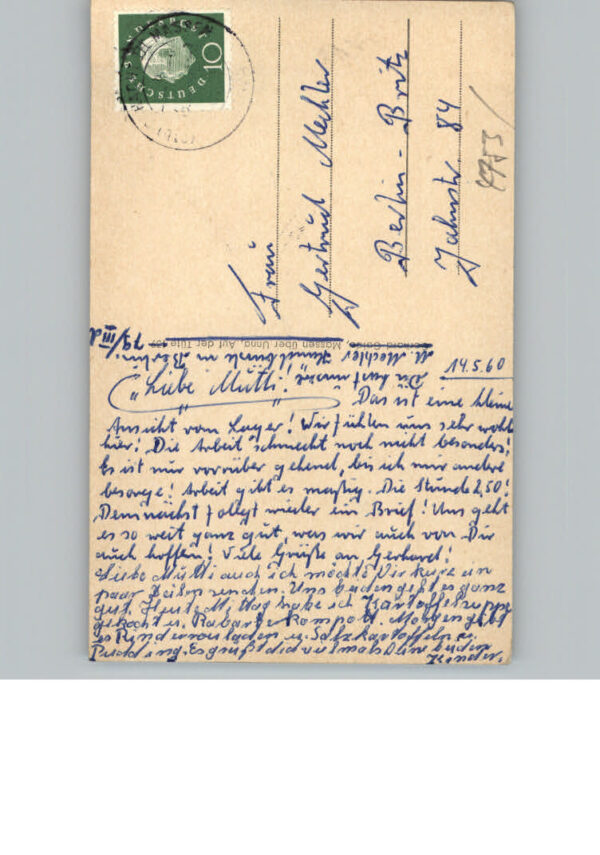 DEUTSCHE BUNDESPOST
10
Frau
Gertrud Mechler
Berlin-Britz
Jahnstr. 84
Massen über Unna, Auf der Tüte
M. Mechler
in Berlin!
14.5.60
"Liebe Mutti!"
Das ist eine kleine
Ansicht vom Lager! Wir fühlen uns sehr wohl
hier! Die Arbeit schmeckt noch nicht besonders!
Es ist nur vorrüber gehend, bis ich mir andere
besorge! Arbeit gibt es massig. Die Stunde 2,50!
Demnächst folgt wieder ein Brief! Uns geht
es so weit ganz gut, was wir auch von Dir
auch hoffen! Viele Grüße an Gerhard!
Liebe Mutti auch ich möchte Dir kurz ein
paar Zeilen senden. Uns beiden geht es ganz
gut. Heute Mittag habe ich Kartoffelsuppe
gekocht u. Rabarberkompott. Morgen gibt
es Rinderrouladen u. Salzkartoffeln u.
Pudding. Es grüßt dich vielmals Deine beiden
Kinder.